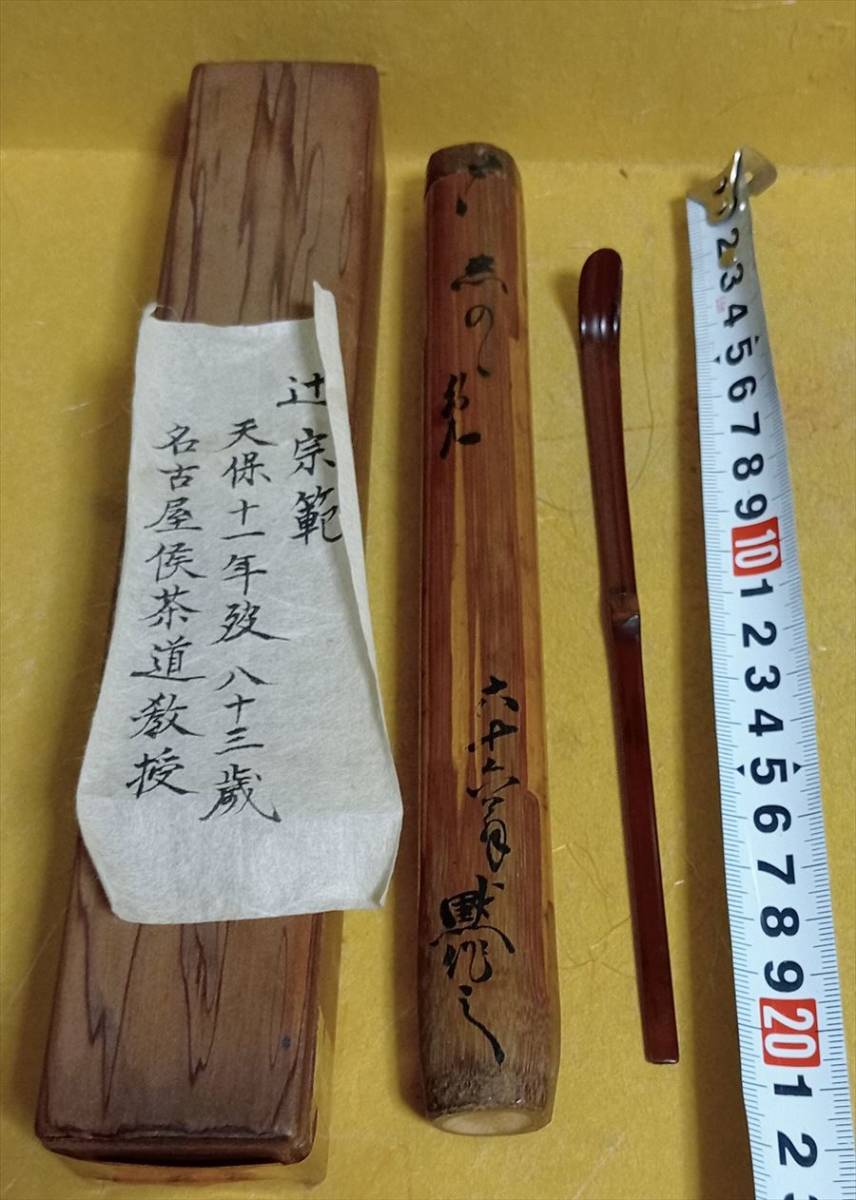 辻宗範
天保十一年歿 八十三歳
名古屋侯茶道教授
六十六翁
黙作之
2 3 4 5 6 7 8 9 10 1 2 3 4 5 6 7 8 9 20 1 2